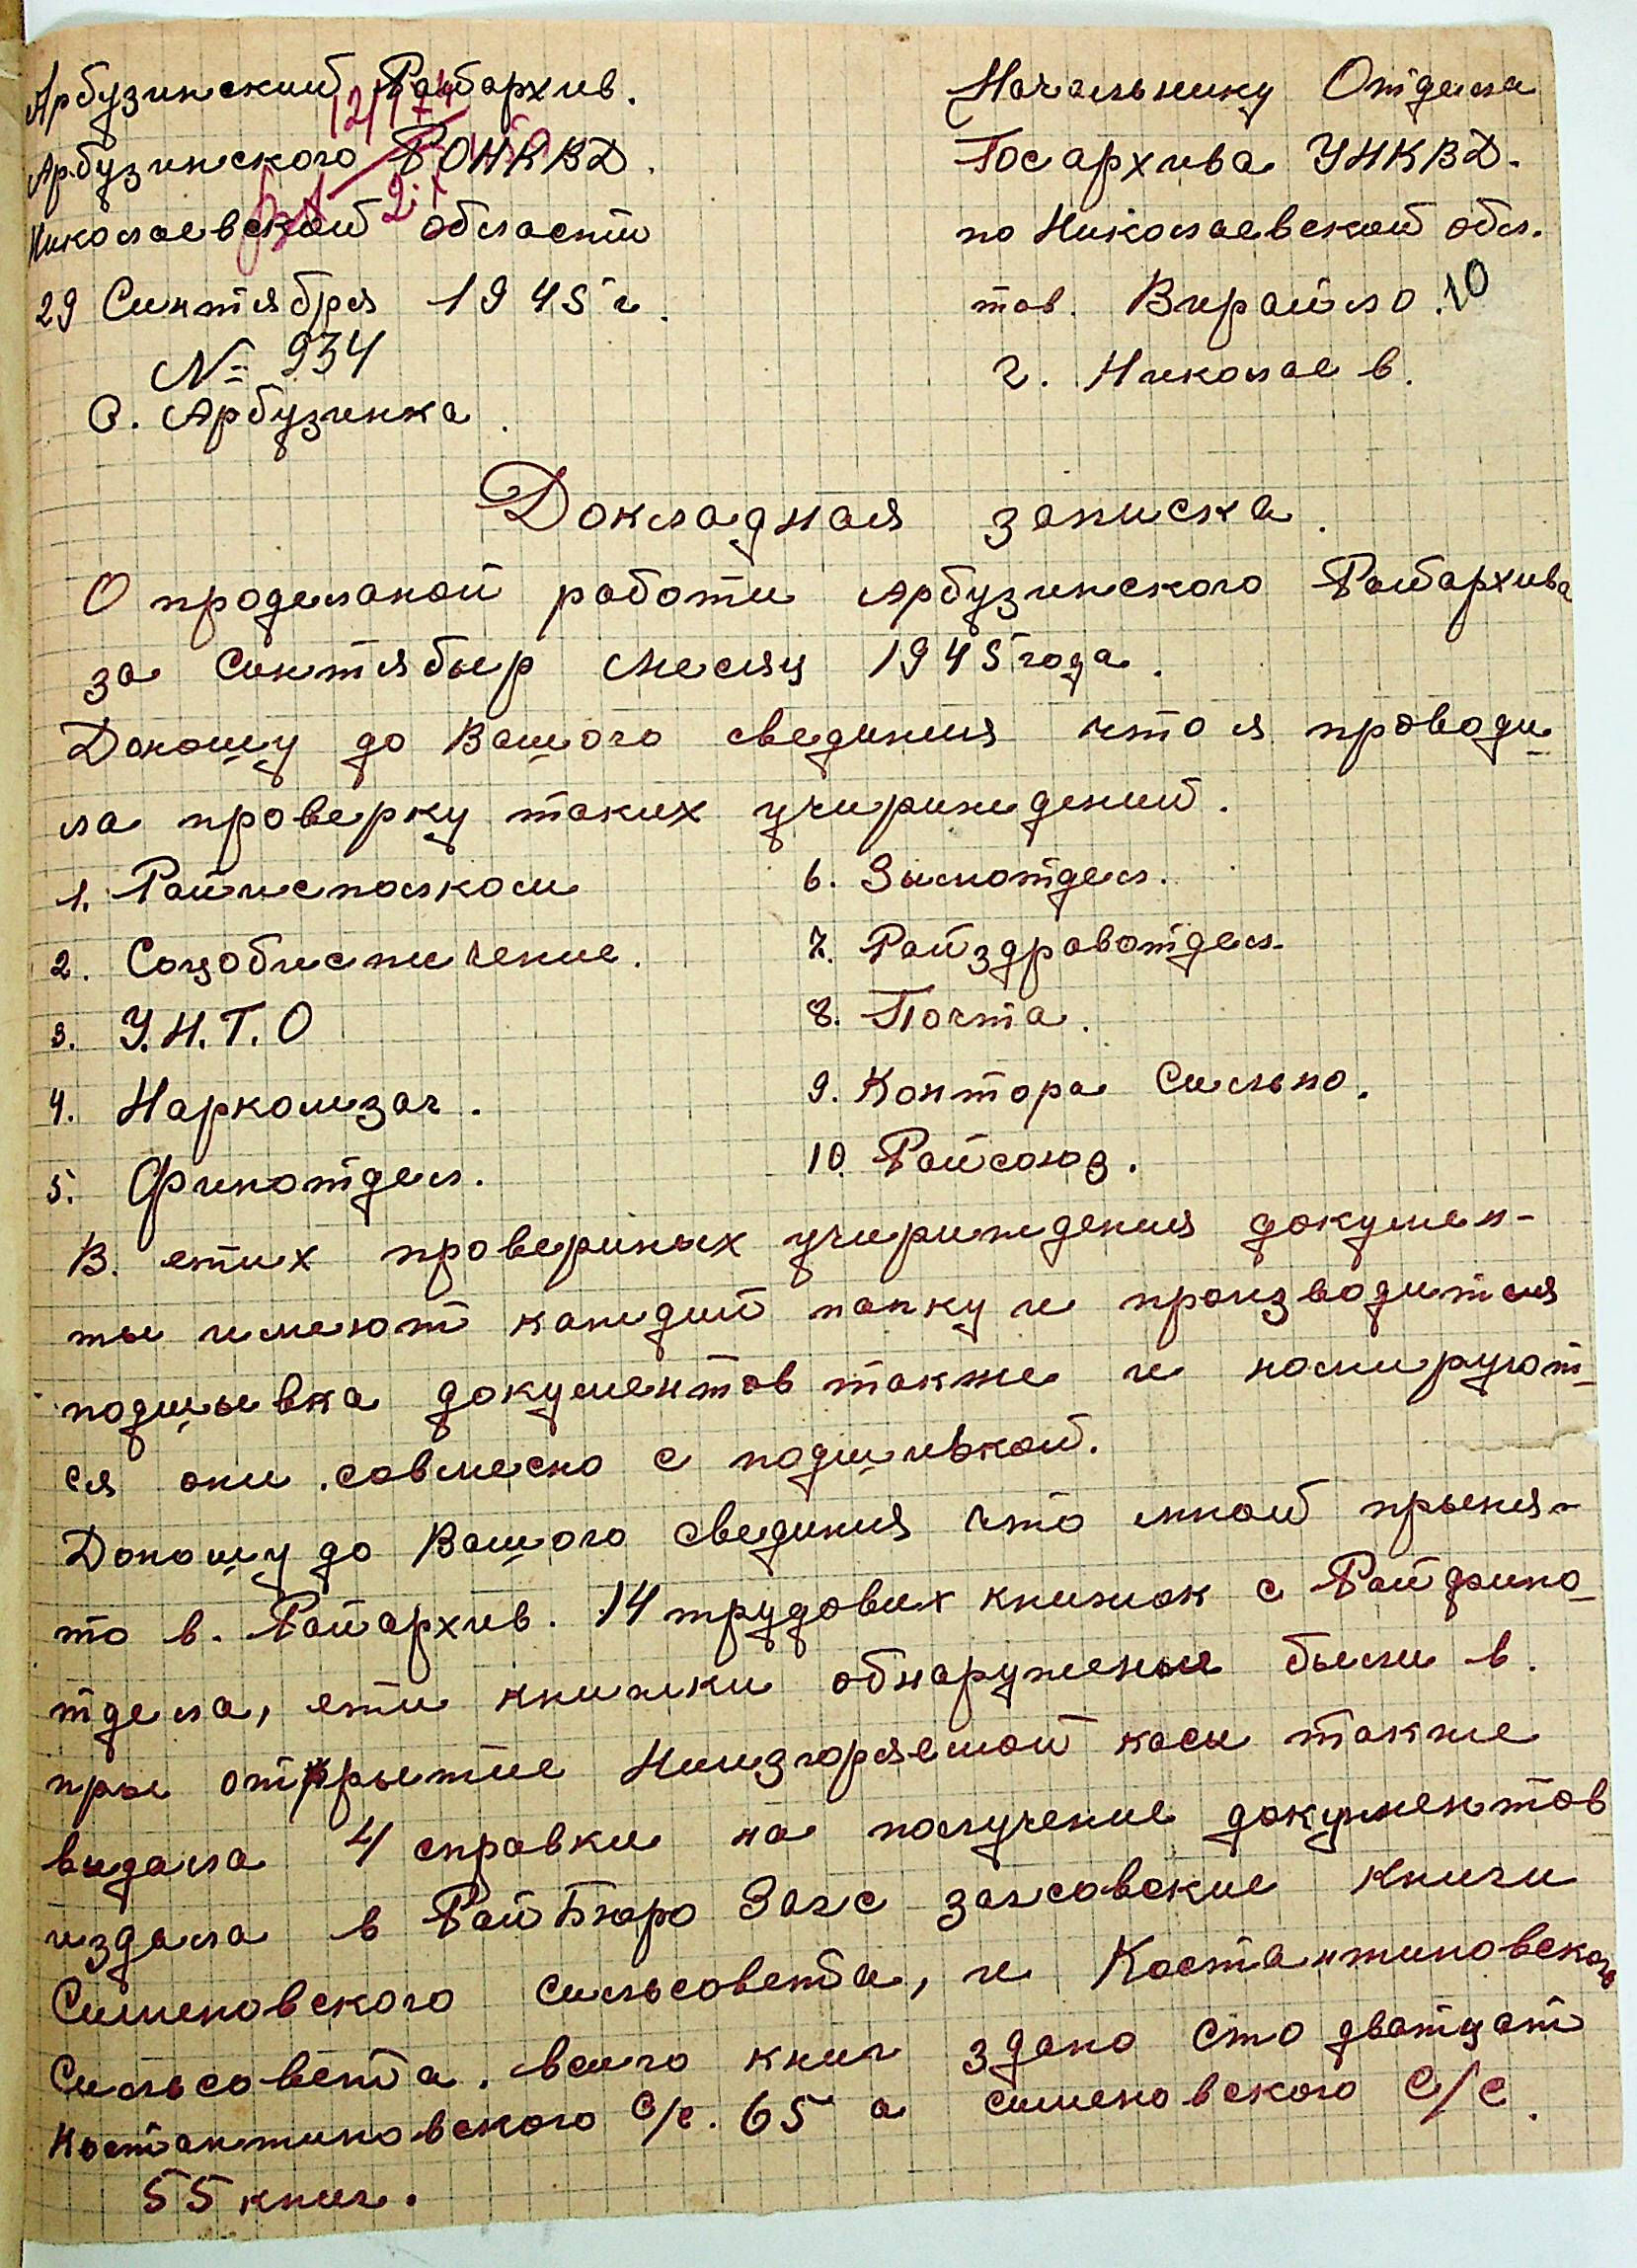 Арбузинский Райархив.
Арбузинского РОНКВД.
Николаевской области
29 Синтября 1945 г.
№ 934
С. Арбузинка.
Начальнику Отдела
Госархива УНКВД.
по Николаевской обл.
тов. Вирайло. 10
г. Николаев.
Докладная записка.
О проделаной работи Арбузинского Райархива
за синтябыр месяц 1945 года.
Доношу до Вашого свединия что я проводи
ла проверку таких учириждений.
1. Райисполком
2. Соцобиспичение.
3. У.Н.Т.О
4. Наркомзаг.
5. Финотдел.
6. Зымотдел.
7. Райздравотдел.
8. Почта.
9. Контора Сильпо.
10. Райсоюз.
В. етих провериных учириждения докумен-
ты имеют каждий папку и производится
подшывка документов также и номируют
ся они совмесно с подшивкой.
Доношу до Вашого свединия что мной прыня-
то в. Райархив. 14 трудових книжок с Райфино
тдела, ети книжки обнаружены были в.
пры открытие Низгораемой касы также
видала 4 справки на получение документов
издала в РайБюро Загс загсовские книги
Сименовского сильсовета, и Костантиновского
Сильсовета. всиго книг здано сто дватцат
Костантиновского С/с. 65 а сименовского С/С.
55 книг.